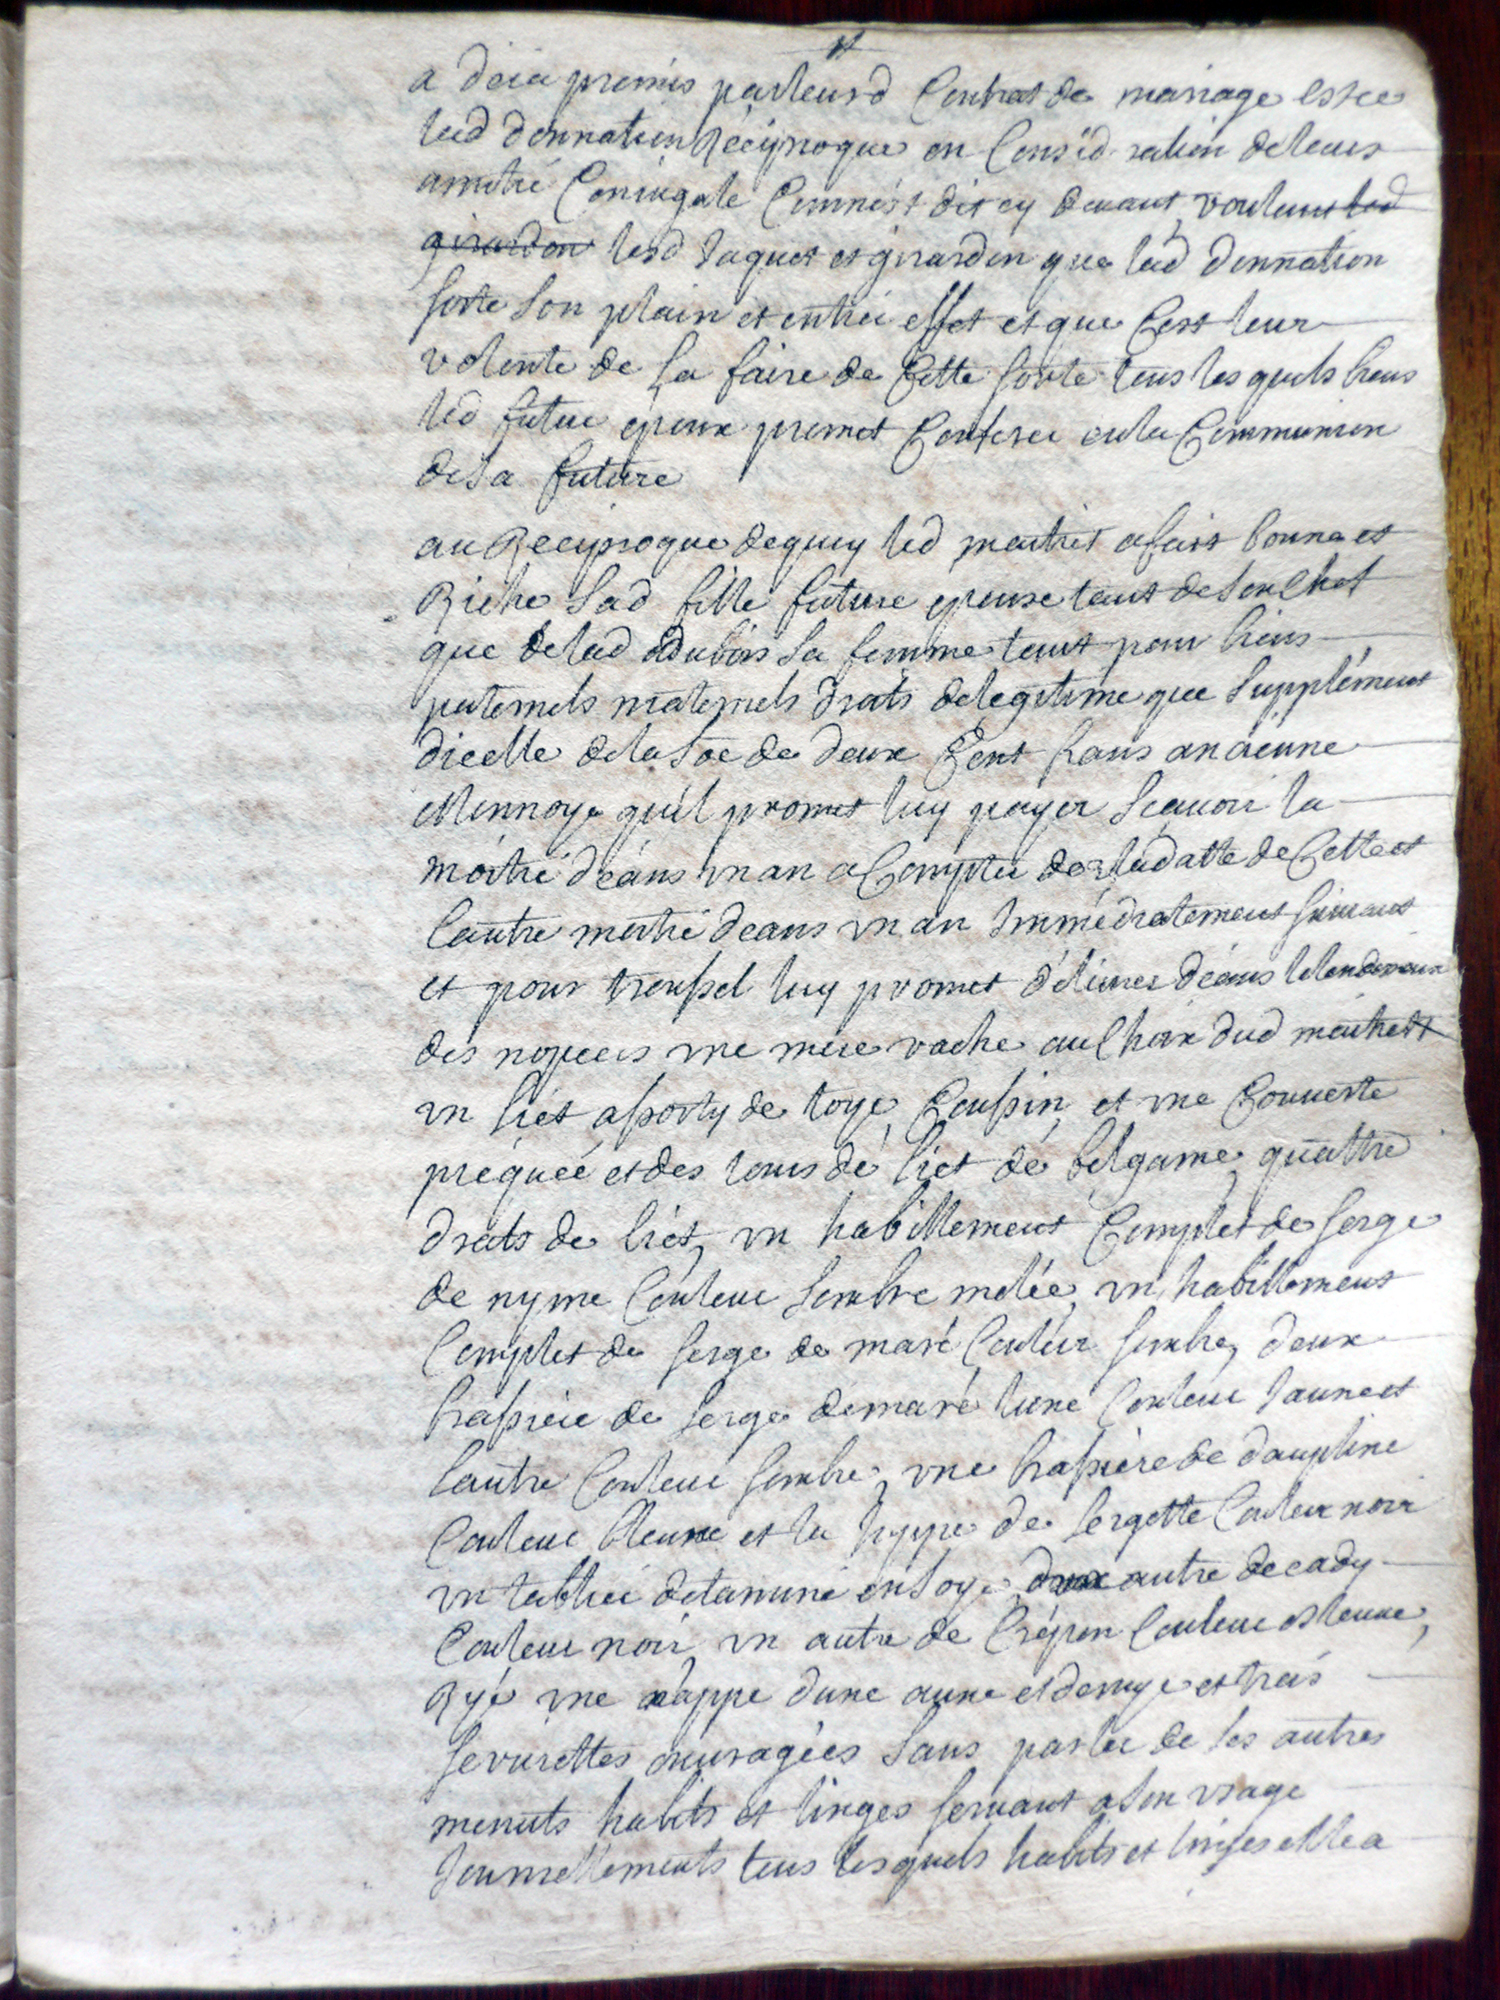 et
a deia promis par leurd Contrat de mariage estre
lad donnation Réciproque en Considération de leurs
amitié Coniugale Comme est dit cy deuant, voulant led
girardon lesd Jaquet et girardon que lad donnation
sorte son plain et entier effet et que Cest leur
volonte de la faire de Cette sorte tous les quels biens
led futur epoux promet Conferer en la Communion
de sa future
au Reciproque dequoy led mentrit a fait bonne et
Riche sad fille future epouse tant de son Chef
que de lad dubois sa femme tant pour biens
paternels maternels droits de legitime que supplément
dicelle de la soe de deux Cent frans ancienne
Monnoye quil promet luy payer Scauoir la
moitié déans vn an a Compter de la datte de Cette et
lautre moitié deans vn an Immédiatement suiuant
et pour troussel luy promet délivrer déans le lendemain
des nopces vne mere vache au Choix dud
vn lict assorty de toye Coussin et vne Couuerte
préquée et des tours dé lict dé belgame quattre
drats de lict, vn habillement Complet de serge
de nyme Couleur sombre melée, vn habillement
Complet de serge de maré Couleur sombre, deux
brassiere de serge de maré lune Couleur Jaune et
lautre Couleur sombre, vne brassiere de dauphine
Couleur bleume et la hyppe de sergette Couleur noir
vn tablier detamine en soye autre de cady
Couleur noir vn autre de Crépon Couleur
Ryé vne nappe dune aune et demye et trois
seruiettes ouuragées sans parler de ses autres
menuts habits et linges seruant a son vsage
Journellements tous les quels habits et linges elle a